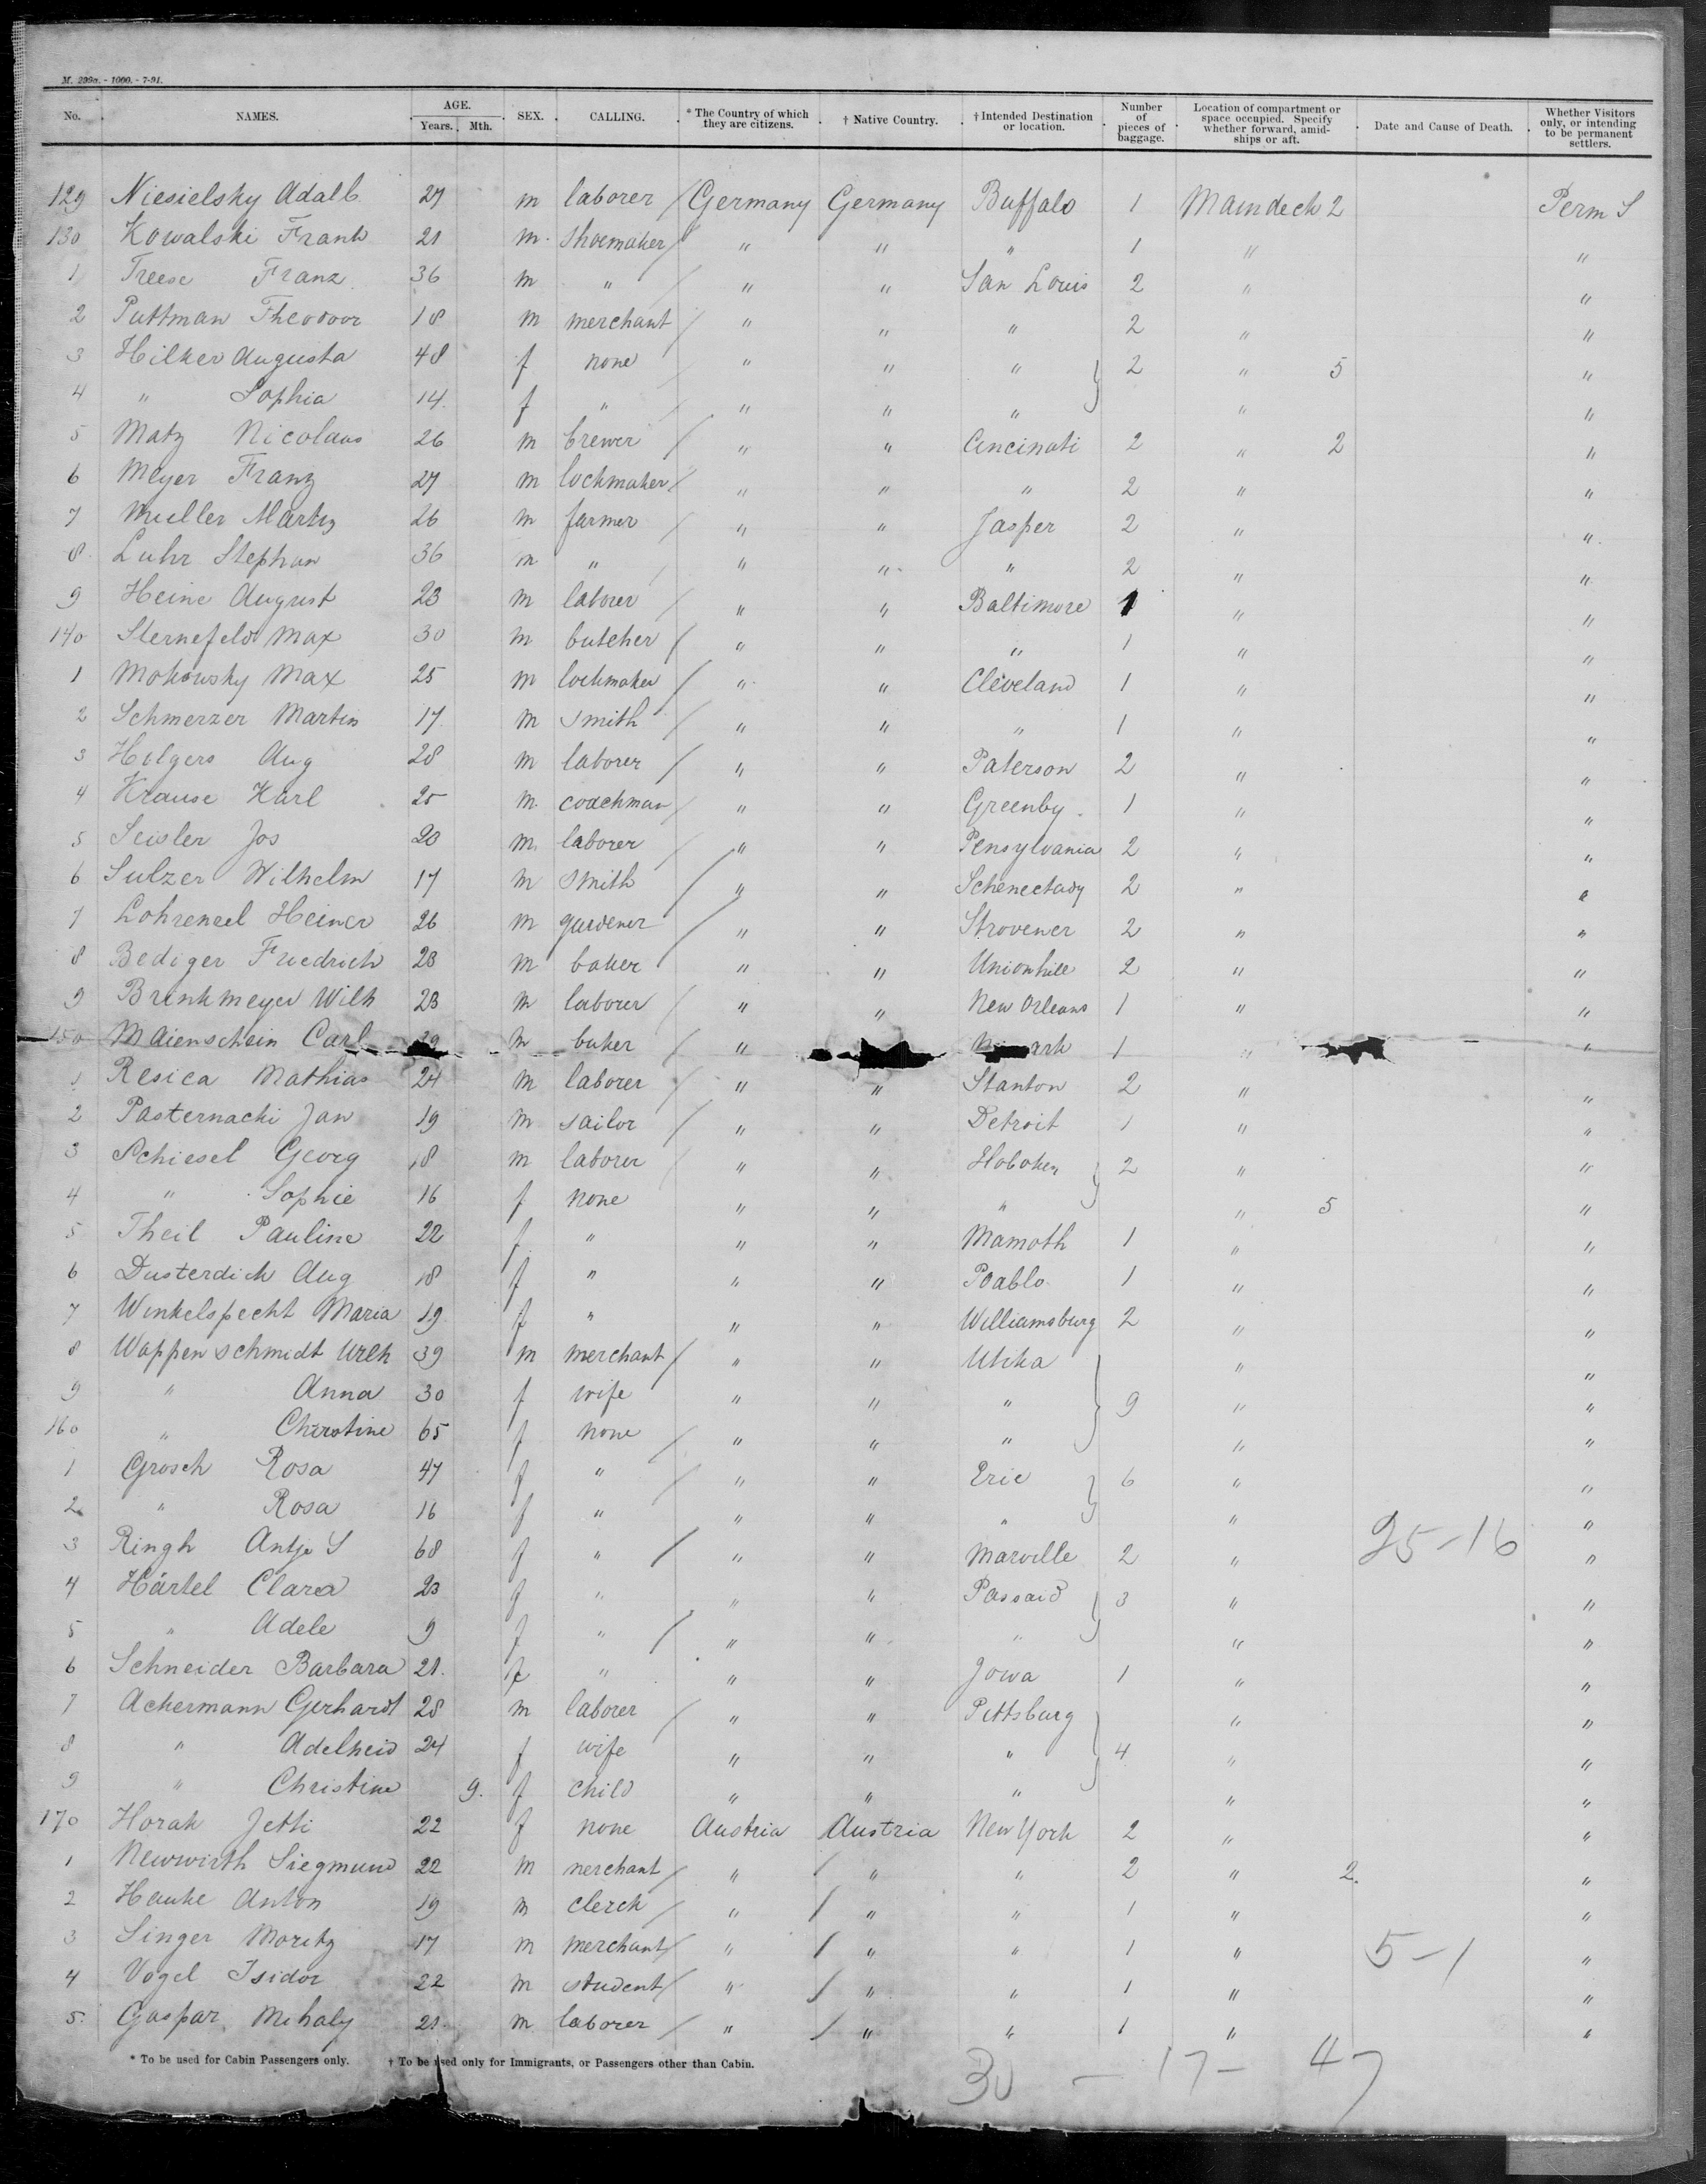 M. 299a. - 1000. - 7-91.
No. NAMES. AGE. Years. Mth. SEX. CALLING. * The Country of which they are citizens. † Native Country. † Intended Destination or location. Number of pieces of baggage. Location of compartment or space occupied. Specify whether forward, amidships or aft. Date and Cause of Death. Whether Visitors only, or intending to be permanent settlers.
129 Niesielsky Adalb. 27 m laborer / Germany Germany Buffalo 1 Maindeck 2 Perm S
130 Kowalski Frank 21 m. shoemaker / " " " 1 " "
1 Treese Franz 36 m " / " " San Louis 2 " "
2 Puttman Theodoor 18 m merchant / " " " 2 " "
3 Hilker Augusta 48 f none / " " " } 2 " 5 "
4 " Sophia 14. f " / " " " " "
5 Matz Nicolaus 26 m brewer / " " Cincinati 2 " 2 "
6 Meyer Franz 27 m lockmaker / " " " 2 " "
7 Muller Martin 26 m farmer / " " Jasper 2 " "
8. Luhr Stephan 36 m " / " " " 2 " "
9 Heine August 23 m laborer / " " Baltimore 1 " "
140 Sternefeld Max 30 m butcher / " " " 1 " "
1 Mokowsky Max 25 m lockmaker / " " Cleveland 1 " "
2 Schmerzer Martin 17. m smith / " " " 1 " "
3 Hilgers Aug 28 m laborer / " " Paterson 2 " "
4 Krause Karl 25 m. coachman / " " Greenby. 1 " "
5 Seisler Jos 20 m. laborer / " " Pensylvania 2 " "
6 Sulzer Wilhelm 17 m smith / " " Schenectady 2 " "
7 Lohrensel Heiner 26 m gardener / " " Strovener 2 " "
8 Bediger Friedrich 23 m baker / " " Unionhill 2 " "
9 Brinkmeyer Wilh 23 m laborer / " " New Orleans 1 " "
150 Maienschein Carl m baker / " 1 " "
1 Resica Mathias 24 m laborer / " " Stanton 2 " "
2 Pasternacki Jan 19 m sailor / " " Detroit 1 " "
3 Schiesel Georg 18 m laborer / " " Hoboken } 2 " "
4 " Sophie 16 f none " " " " 5 "
5 Theil Pauline 22 f. " " " Mamoth 1 " "
6 Dusterdick Aug 18 f " " " Poablo 1 " "
7 Winkelspecht Maria 19. f " " " Williamsburg 2 " "
8 Wappenschmidt Urlh 39 m merchant / " " Utika } " "
9 " Anna 30 f wife " " " 9 " "
160 " Christine 65 f none / " " " " "
1 Grosch Rosa 47 f " / " " Erie } 6 " "
2 " Rosa 16 f " " " " " "
3 Ringh Antje S 68 f " / " " Marville 2 " 25-16 "
4 Härtel Clara 23 f " " " Passaid } 3 " "
5 " Adele 9 f " / " " " " "
6 Schneider Barbara 21. f " " " Jowa 1 " "
7 Ackermann Gerhardt 28 m laborer / " " Pittsburg } " "
8 " Adelheid 24 f wife " " " 4 " "
9 " Christine 9. f child " " " " "
170 Horak Jetti 22 f none Austria Austria New York 2 " "
1 Newwirth Siegmund 22 m merchant / " / " " 2 " 2. "
2 Hauke Anton 19 m clerck / " / " " 1 " "
3 Singer Moritz 17 m merchant / " / " " 1 " 5-1 "
4 Vogel Isidor 22 m student / " / " " 1 " "
5. Gaspar Mihaly 21. m. laborer / " / " " 1 " "
* To be used for Cabin Passengers only. † To be used only for Immigrants, or Passengers other than Cabin.
30 - 17 - 47